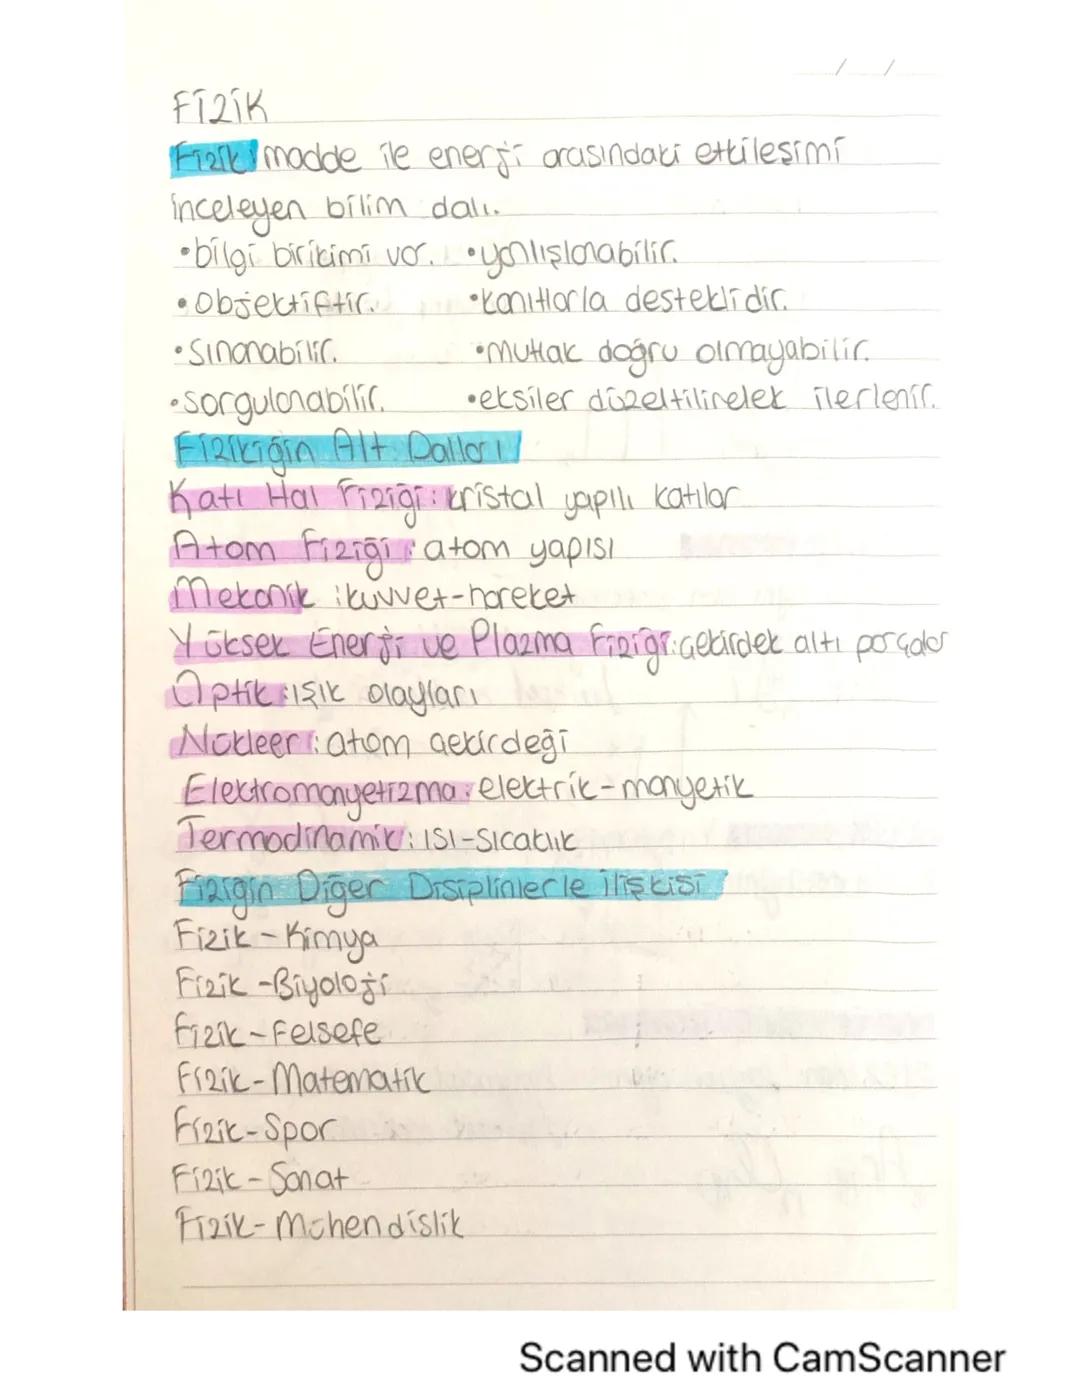 FİZİK
Fizik: madde ile enerji arasındaki etkileşimi
inceleyen bilim dalı.
•bilgi birikimi var. •yanlışlanabilir.
•Objektiftir. •kanıtlarla desteklidir.
•Sınanabilir. •mutlak doğru olmayabilir.
•sorgulanabilir. •eksiler düzeltilirelek ilerlenir.
Fizikiğin Alt Dalları
Katı Hal Fiziği: kristal yapılı katılar
Atom Fiziği: atom yapısı
Mekanik: kuvvet-hareket
Yüksek Enerji ve Plazma Fiziği: çekirdek altı parçalar
Optik: ışık olayları
Nükleer: atom çekirdeği
Elektromanyetizma: elektrik-manyetik
Termodinamik: ISI-Sıcaklık
Fiziğin Diğer Disiplinlerle ilişkisi
Fizik-Kimya
Fizik-Biyoloji
Fizik-Felsefe
Fizik-Matematik
Fizik-Spor
Fizik-Sanat
Fizik-Mühendislik
Scanned with CamScanner